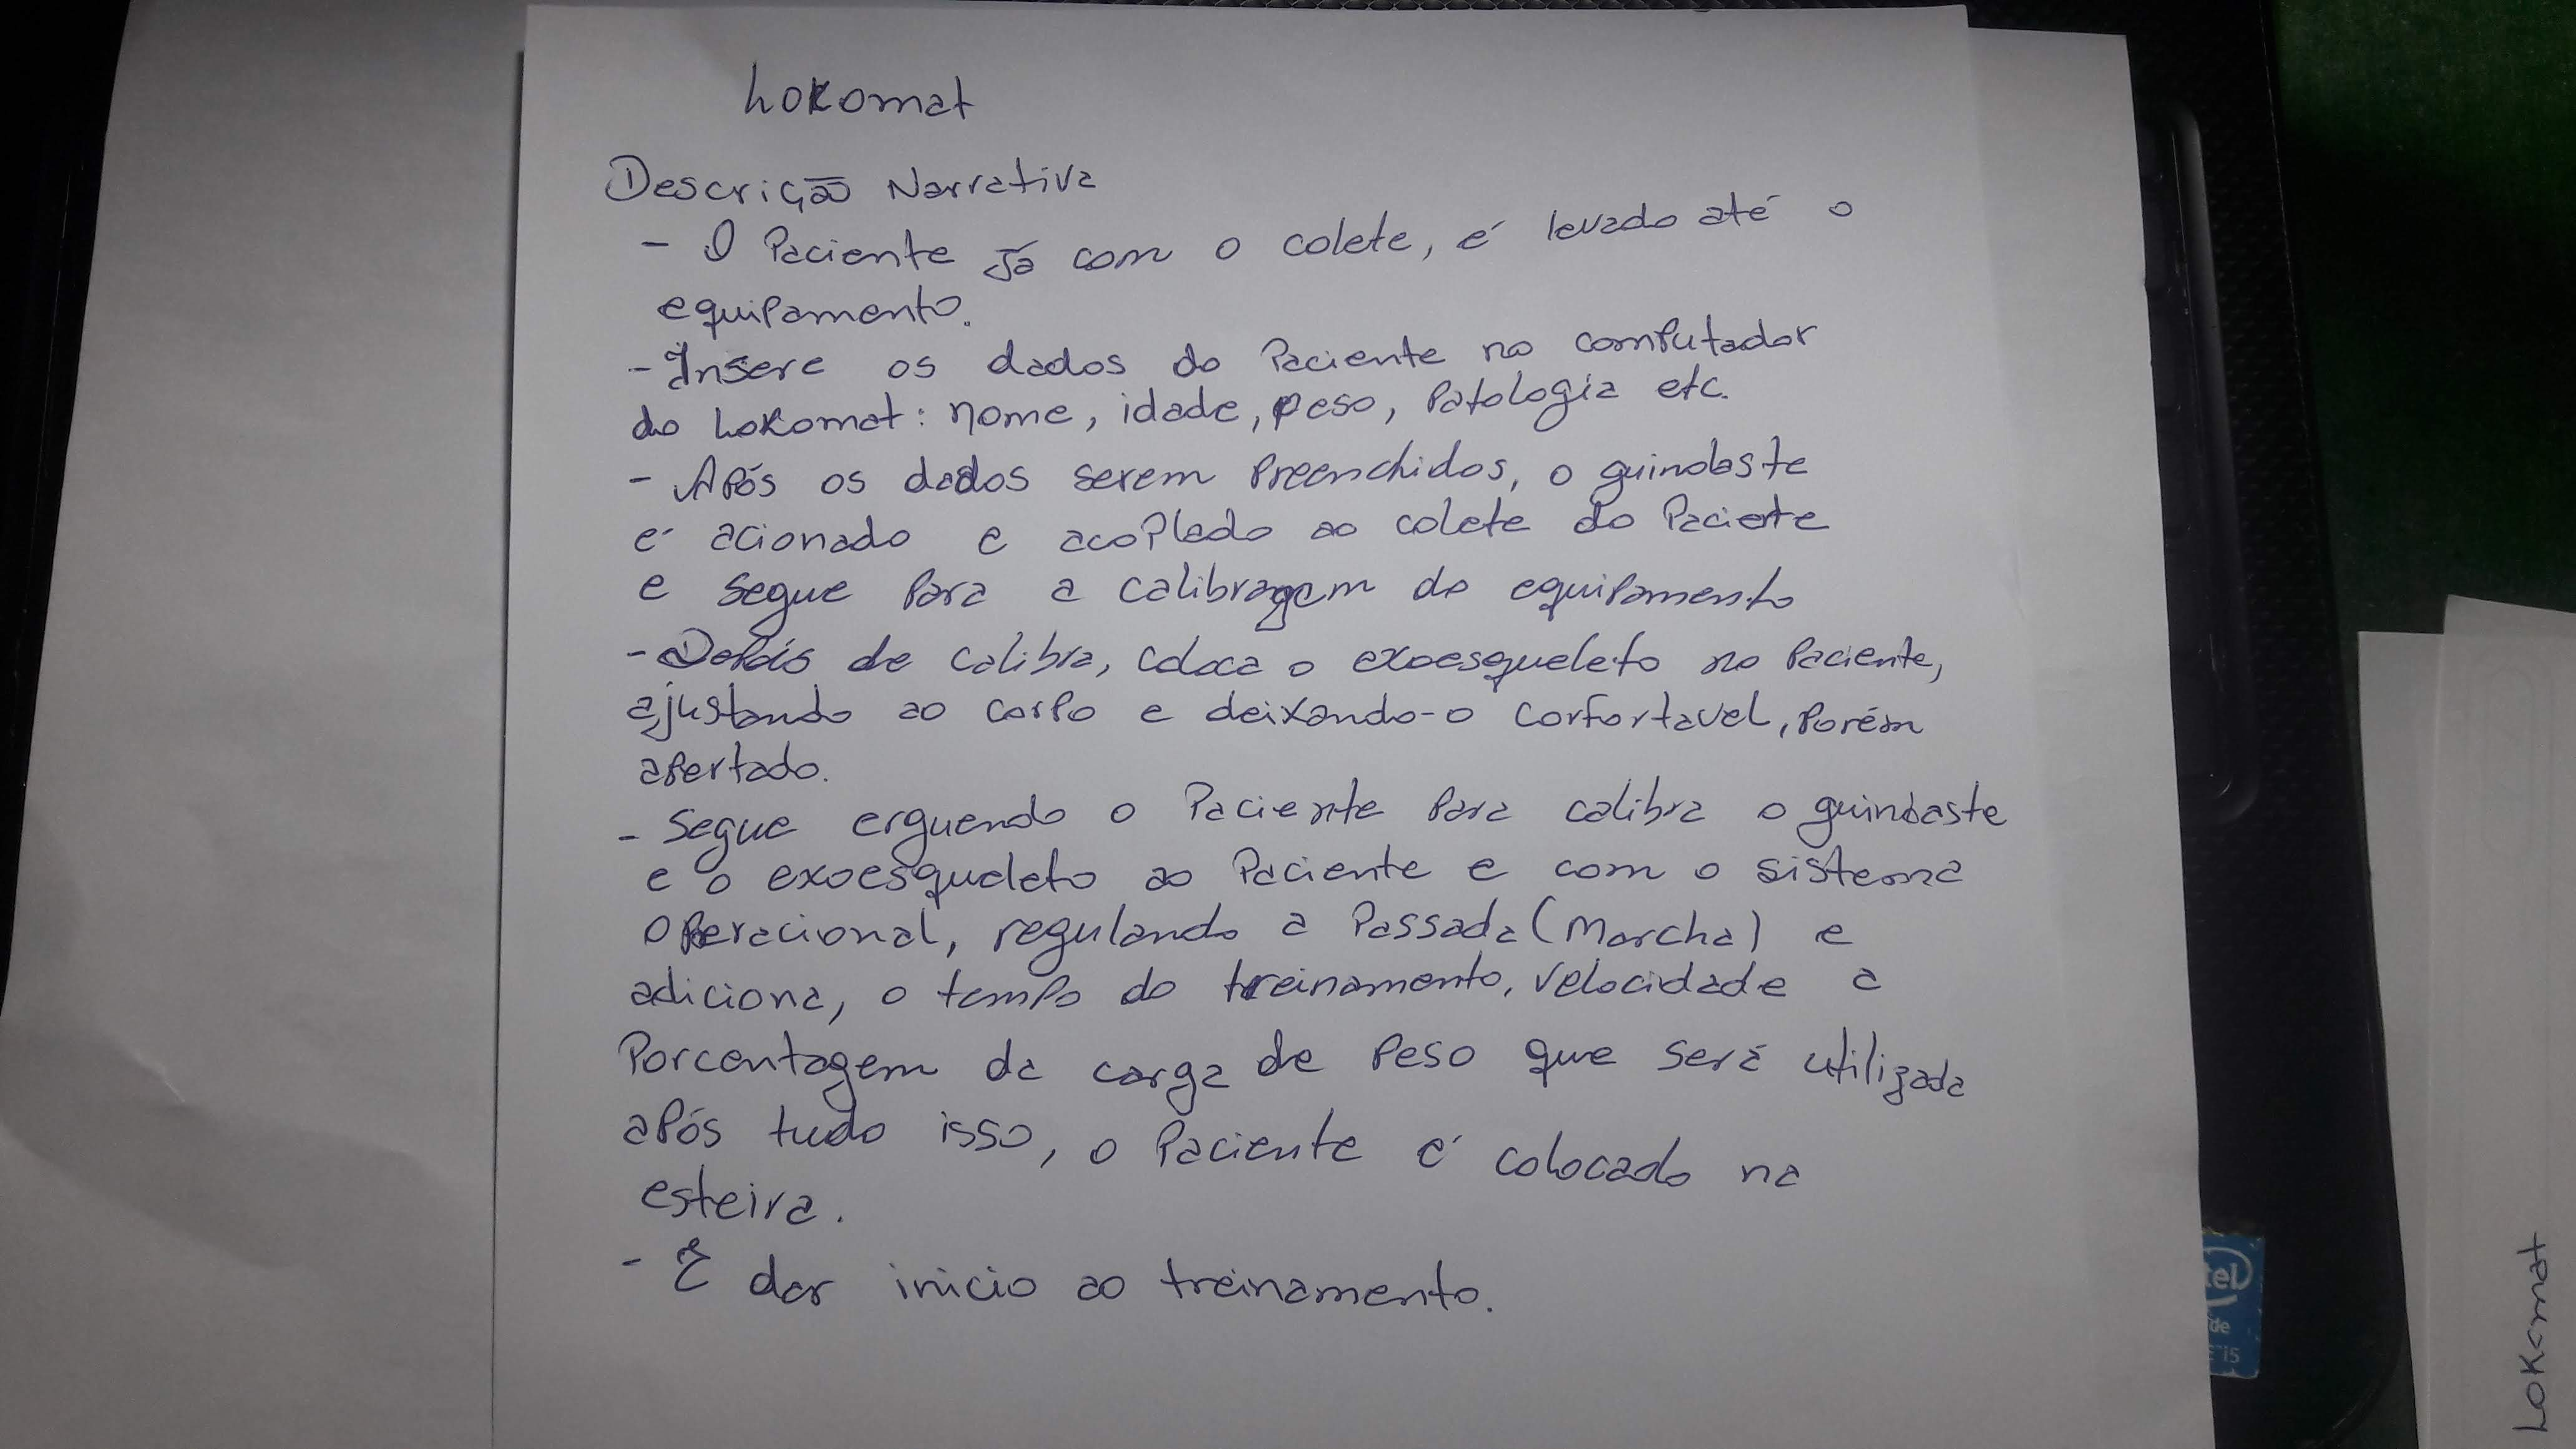 Lokomat
Descrição Narrativa
- O Paciente Já com o colete, é levado até o
equipamento.
- Insere os dados do Paciente no computador
do Lokomat: nome, idade, peso, Patologia etc.
- Após os dados serem Preenchidos, o guindaste
é acionado e acoplado ao colete do Paciente
e segue Para a calibragem do equipamento
- Depois de calibra, coloca o exoesqueleto no Paciente,
ajustando ao corpo e deixando-o confortavel, Porém
apertado.
- Segue erguendo o Paciente Para calibra o guindaste
e o exoesqueleto ao Paciente e com o sistema
operacional, regulando a Passada (Marcha) e
adiciona, o tempo do treinamento, velocidade a
Porcentagem da carga de Peso que será utilizada
após tudo isso, o Paciente é colocado na
esteira.
- E dar inicio ao treinamento.
Lokomat